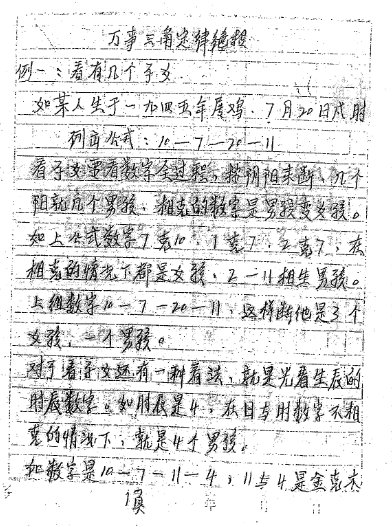 万事三角定律绝授
例一：看有几个子女
如某人生于一九四五年属鸡、7月20日戌时
列立公式：10—7—20—11
看子女要看数字全过程，按阴阳来断，几个
阳就几个男孩，相克的数字是男孩变女孩。
如上公式数字7克10、1克7、2克7，在
相克的情况下都是女孩，2—11相生男孩。
上组数字10—7—20—11，这样断他是3个
女孩，一个男孩。
对于看子女还有一种看法，就是光看生辰的
时辰数字。如时辰是4，在日与时数字不相
克的情况下，就是4个男孩。
如数字是10—7—11—4，11与4是金克木
1页